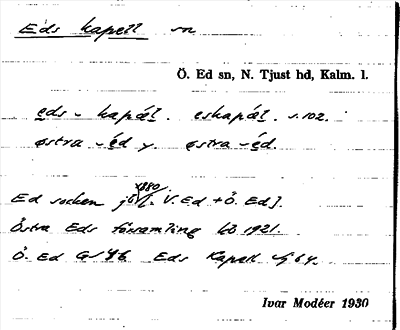 Eds kapell sn
Ö. Ed sn, N. Tjust hd, Kalm. l.
eds-kapäl. eskapäl. s. 102.
østra-éd y. østra-éd.
1880
Ed socken V. Ed + Ö. Ed].
Östra Eds församling kb 1921.
Ö. Ed GS Eds Kapell
Ivar Modéer 1930